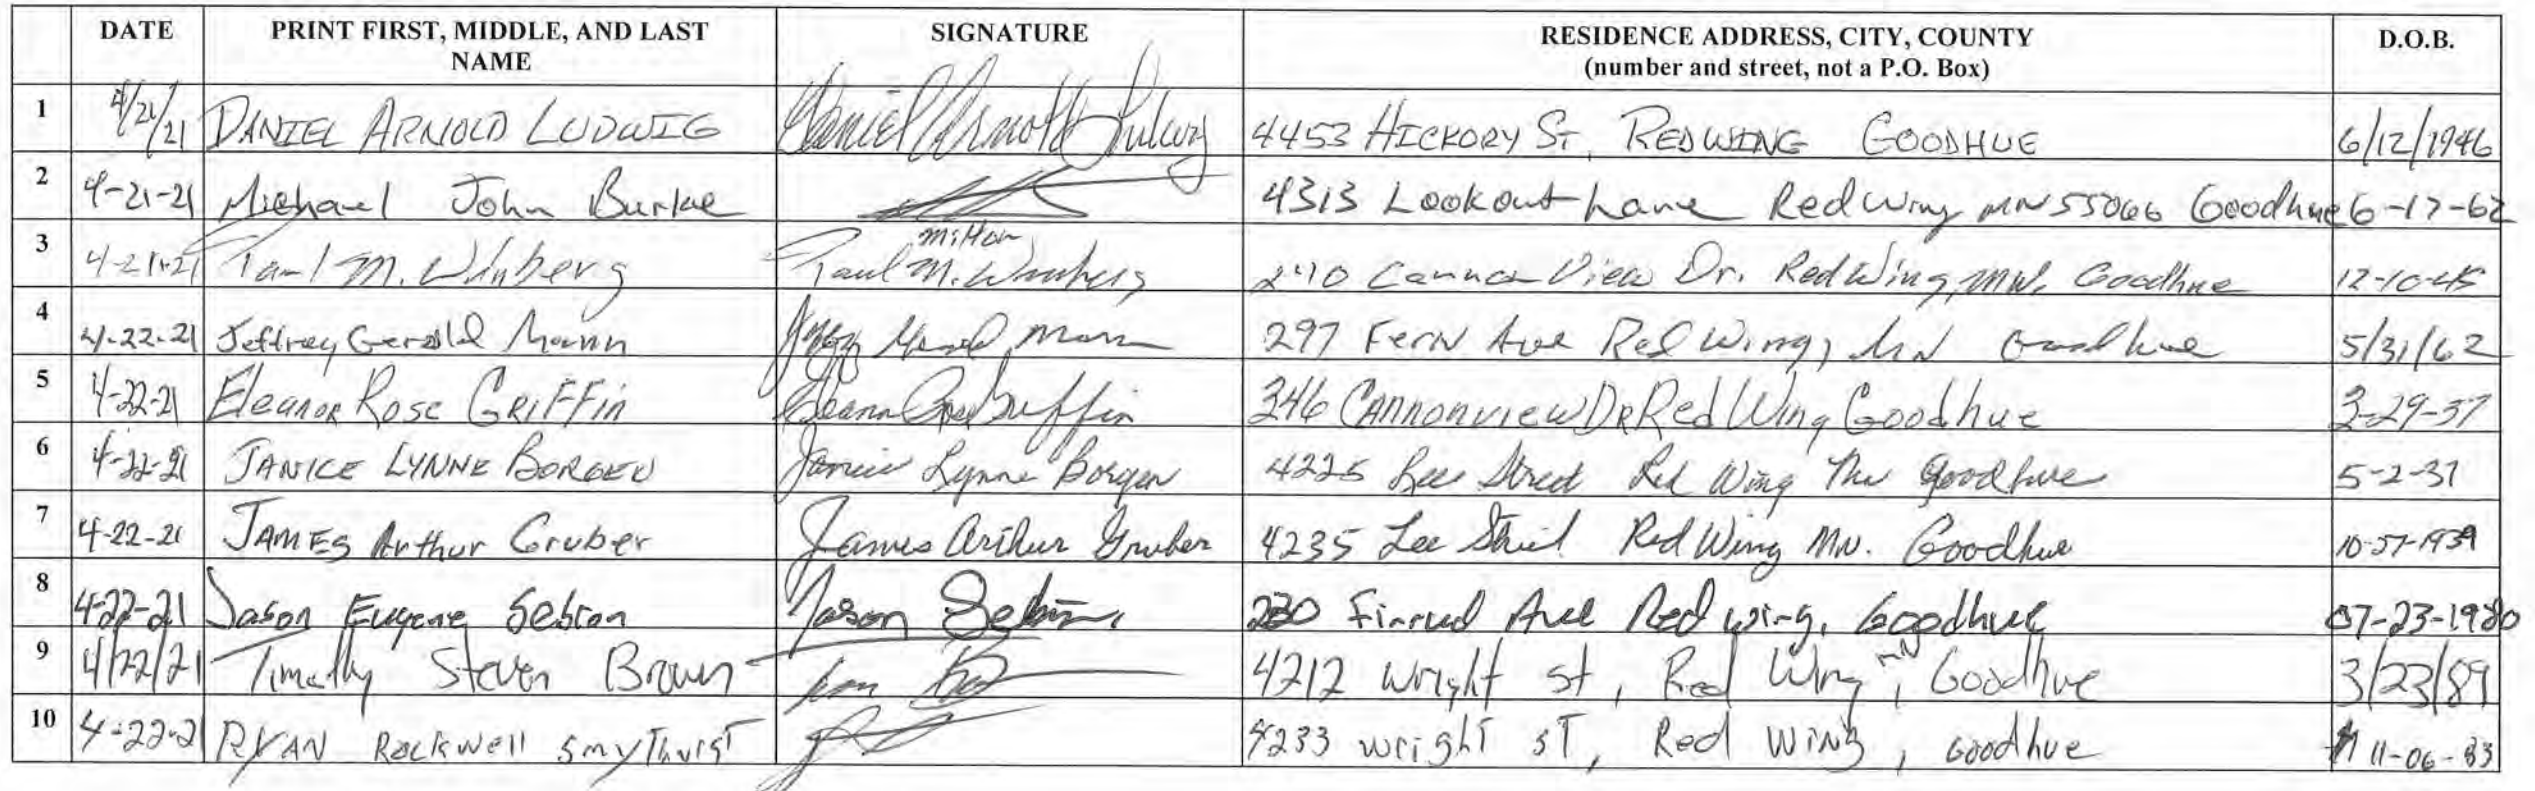 DATE PRINT FIRST, MIDDLE, AND LAST NAME SIGNATURE RESIDENCE ADDRESS, CITY, COUNTY (number and street, not a P.O. Box) D.O.B.
1 4/21/21 DANIEL ARNOLD LUDWIG Daniel Arnold Ludwig 4453 HICKORY ST, RED WING GOODHUE 6/12/1946
2 4-21-21 Michael John Burke 4313 Lookout Lane Red Wing MN 55066 Goodhue 6-17-62
Milton
3 4-21-21 Paul M. Winberg Paul M. Winberg Cannon View Dr. Red Wing, MN. Goodhue 12-10-45
4 4-22-21 Jeffrey Gerald Mann Mann 297 Fern Ave Red Wing, MN Goodhue 5/31/62
5 4-22-21 Eleanor Rose GRIFFin Eleanor Rose Griffin 346 CannonviewDR Red Wing Goodhue 3-29-37
6 4-22-21 JANICE LYNNE BORGEN Janice Lynne Borgen 4225 Lee Street Red Wing Mn Goodhue 5-2-37
7 4-22-21 JAMES Arthur Gruber James Arthur Gruber 4235 Lee Street Red Wing MN. Goodhue
8 4-22-21 Jason Eugene Sebion Jason Sebion Ave Red wing, Goodhue 07-23-1980
9 4/22/21 Timothy Steven Brown 4212 Wright st, Red Wing MN, Goodhue 3/23/89
10 4-22-21 RYAN Rockwell 4233 wright ST, Red Wing, Goodhue 11-06-83